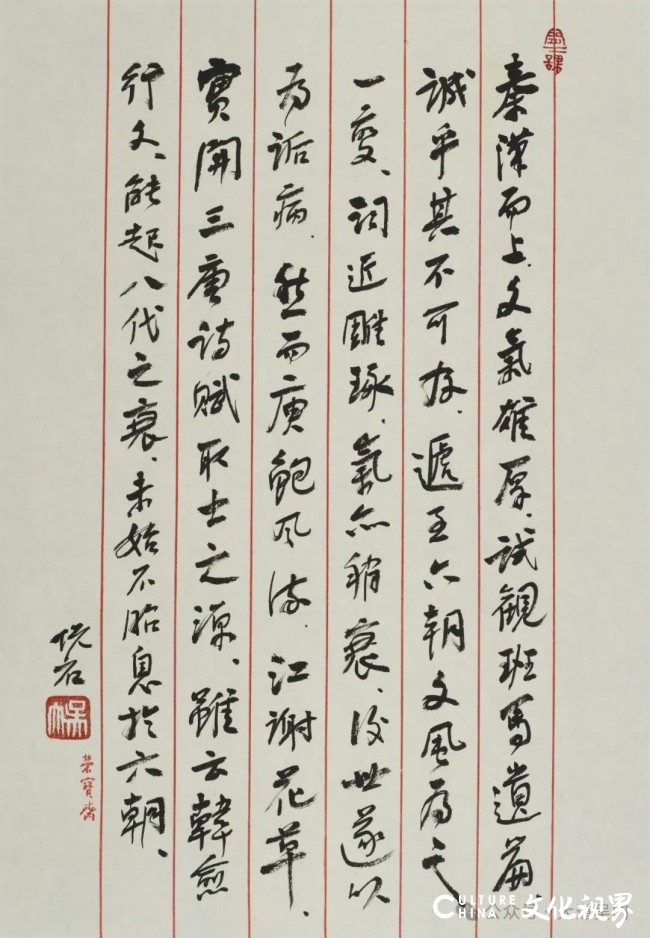 秦漢而上、文氣雄厚、試觀班馬遺篇、
誠乎其不可存、遞至六朝文風為之
一變、詞近雕琢、氣亦稍衰、後世遂以
為詬病、然而庾鮑風流、江謝花草、
實開三唐詩賦取士之源、雖云韓愈
行文、能起八代之衰、未始不胎息於六朝、
悅石
榮寶齋
CULTURE CHINA 文化视界
公众号